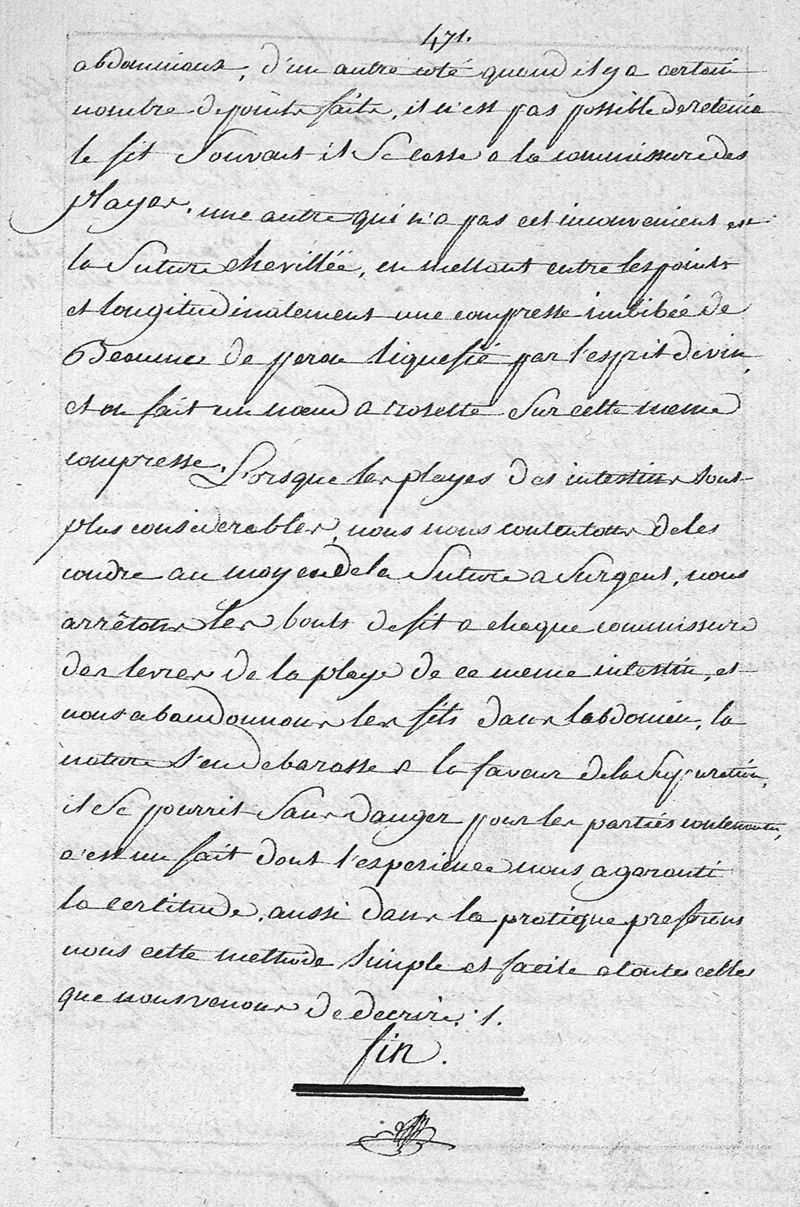 471.
abdominaux, d'un autre coté quand il y a certain
nombre de points faits, il n'est pas possible de retenir
le fil souvent il se casse a la commissure des
playes. une autre qui n'a pas cet inconvenient est
la suture chevillée, en mettant entre les points
et longitudinalement une compresse imbibée de
Beaume de perou liquefié par l'esprit de vin,
et on fait un nœud a rosette sur cette meme
compresse. Lorsque les playes des intestins sont
plus considerables, nous nous contentons de les
coudre au moyen de la suture a surget, nous
arrêtons les bouts de fil a chaque commissure
des levres de la playe de ce meme intestin, et
nous abandonnons les fils dans l'abdomen, la
nature s'en debarasse a la faveur de la supuration,
il se pourrit sans danger pour les parties contenantes,
c'est un fait dont l'experience nous a garanti
la certitude, aussi dans la pratique preferons
nous cette methode simple et facile a toutes celles
que nous venons de decrire. /.
fin.